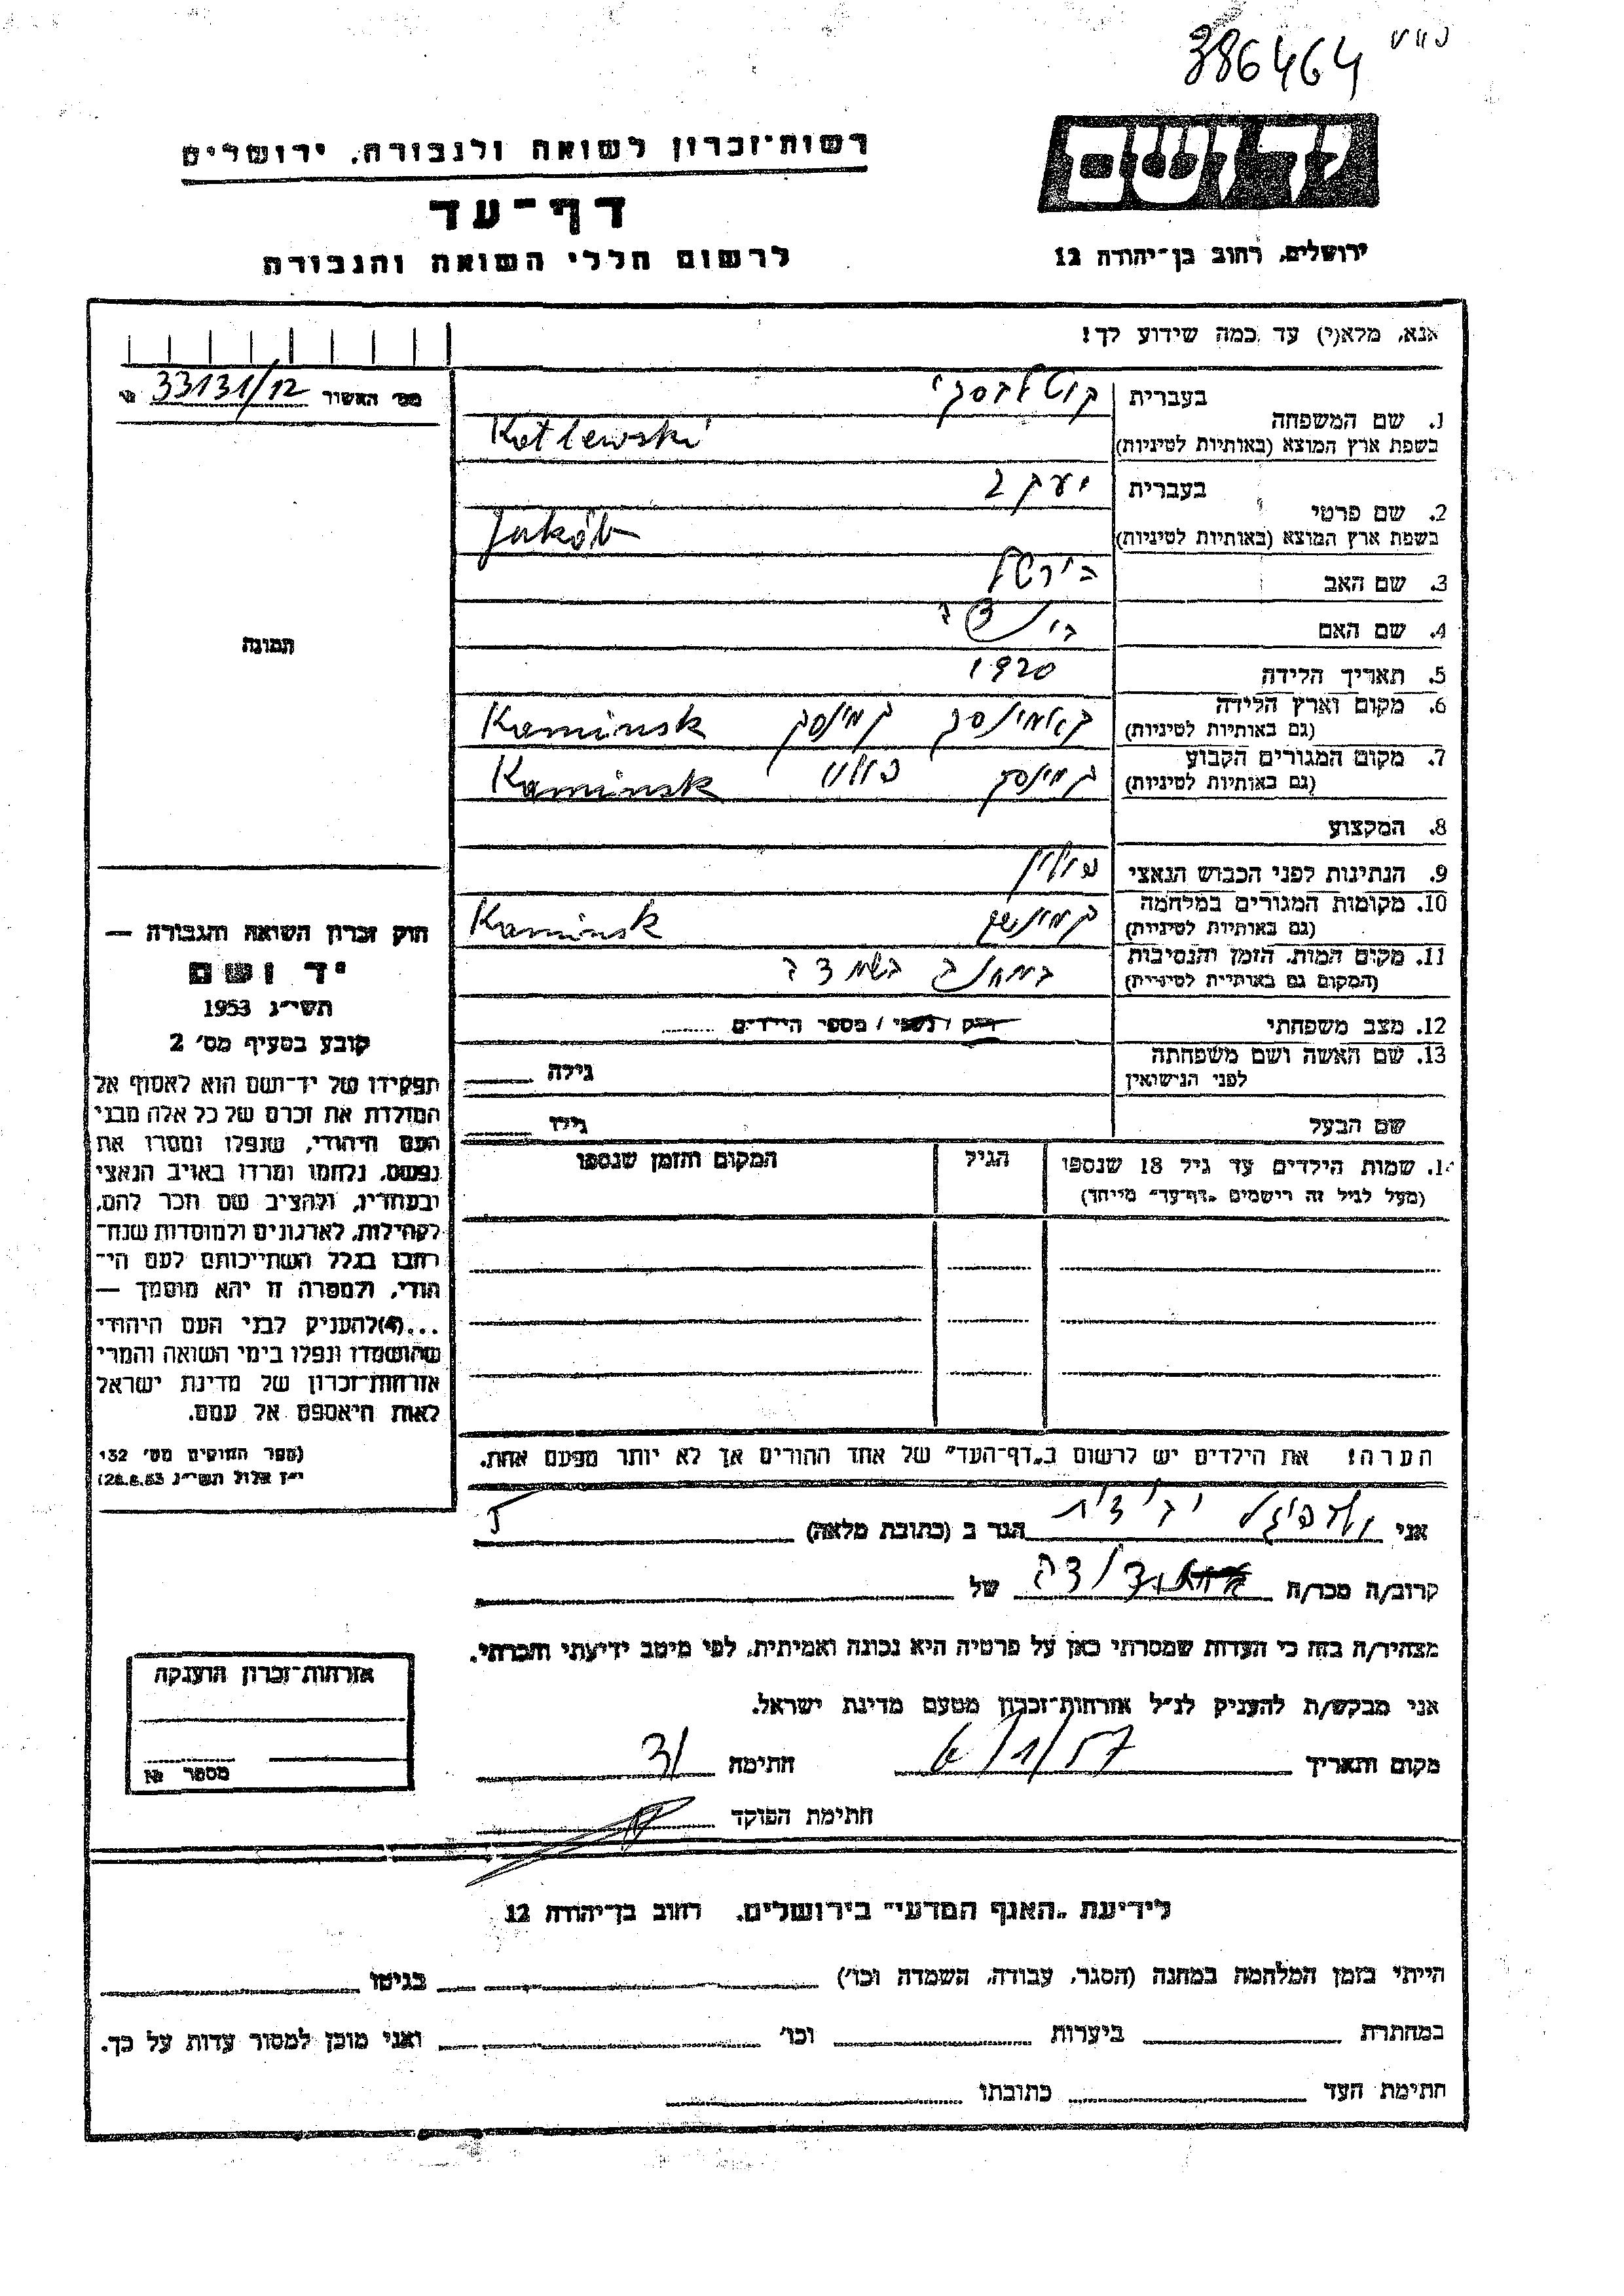 386464
רשות־זכרון לשואה ולגבורה, ירושלים
דף־עד
לרשום חללי השואה והגבורה
ירושלים, רחוב בן־יהודה 12
אנא, מלא(י) עד כמה שידוע לך!
מס׳ האשור 33131/12
1. שם המשפחה בעברית קוטלבסקי
בשפת ארץ המוצא (באותיות לטיניות) Kotlewski
2. שם פרטי בעברית יעקב
בשפת ארץ המוצא (באותיות לטיניות) Jakób
3. שם האב הירשל
4. שם האם
5. תאריך הלידה 1920
6. מקום וארץ הלידה
(גם באותיות לטיניות) קמינסק Kaminsk
7. מקום המגורים הקבוע
(גם באותיות לטיניות) קמינסק Kaminsk
8. המקצוע
9. הנתינות לפני הכבוש הנאצי פולין
10. מקומות המגורים במלחמה
(גם באותיות לטיניות) Kaminsk
11. מקום המות, הזמן והנסיבות
(המקום גם באותיות לטיניות) במחנה השמדה
12. מצב משפחתי רווק / נשוי / מספר הילדים
13. שם האשה ושם משפחתה
לפני הנישואין גילה
שם הבעל גילו
14. שמות הילדים עד גיל 18 שנספו הגיל המקום והזמן שנספו
(מעל לגיל זה רישמים „דף־עד״ מייחד)
תמונה
חוק זכרון השואה והגבורה —
יד ושם
תשי״ג 1953
קובע בסעיף מס׳ 2
תפקידו של יד־ושם הוא לאסוף אל
המולדת את זכרם של כל אלה מבני
העם היהודי, שנפלו ומסרו את
נפשם, נלחמו ומרדו באויב הנאצי
ובעוזריו, ולהציב שם וזכר להם,
לקהילות, לארגונים ולמוסדות שנח־
רבו בגלל השתייכותם לעם הי־
הודי, ולמטרה זו יהא מוסמך —
...(4) להעניק לבני העם היהודי
שהושמדו ונפלו בימי השואה והמרי
אזרחות־זכרון של מדינת ישראל
לאות היאספם אל עמם.
(ספר החוקים מס׳ 132
י״ז אלול תשי״ג 28.8.53)
הערה! את הילדים יש לרשום ב„דף־העד״ של אחד ההורים אך לא יותר מפעם אחת.
אני יהודית הגר ב (כתובת מלאה)
קרוב/ה מכר/ה של
מצהיר/ה בזה כי העדות שמסרתי כאן על פרטיה היא נכונה ואמיתית, לפי מיטב ידיעתי והכרתי.
אני מבקש/ת להעניק לנ״ל אזרחות־זכרון מטעם מדינת ישראל.
מקום ותאריך 6/1/57 חתימה
חתימת הפוקד
אזרחות־זכרון הוענקה
מספר №
לידיעת „האגף המדעי״ בירושלים, רחוב בן־יהודה 12
הייתי בזמן המלחמה במחנה (הסגר, עבודה, השמדה וכו׳) בגיטו
במחתרת ביערות וכו׳ ואני מוכן למסור עדות על כך.
חתימת העד כתובתו